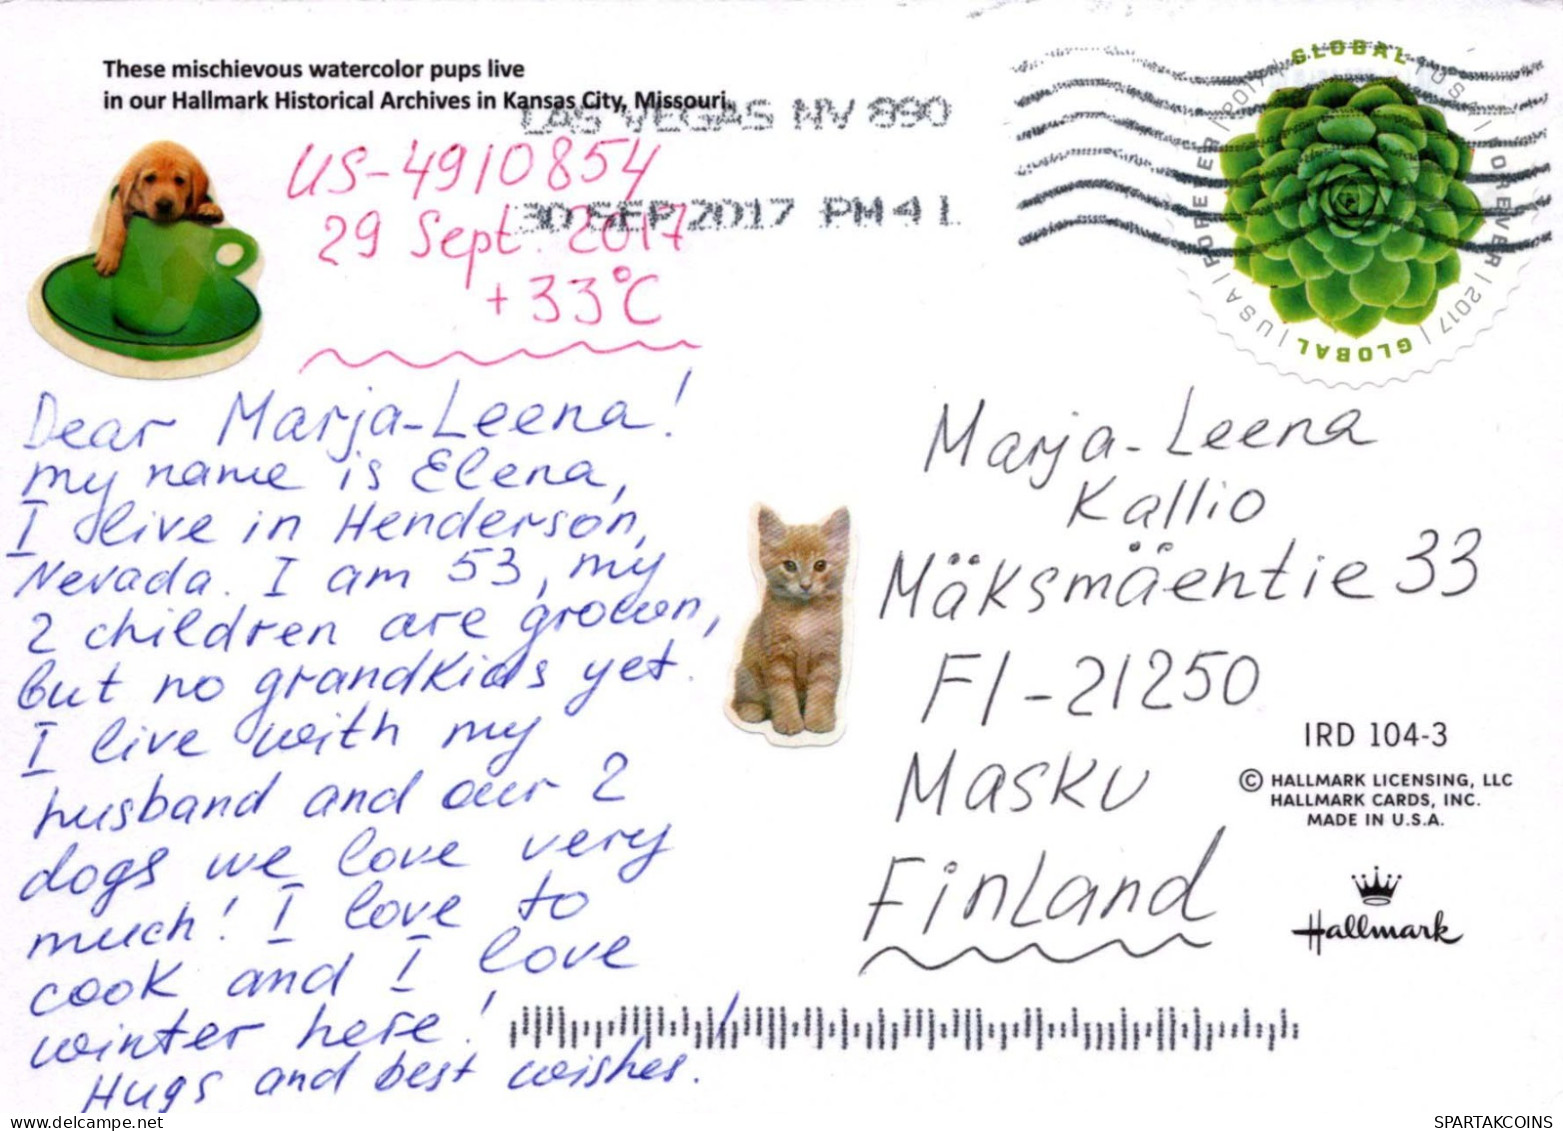 These mischievous watercolor pups live
in our Hallmark Historical Archives in Kansas City, Missouri.
LAS VEGAS NV 890
30 SEP 2017 PM 4 L
GLOBAL
USA | FOREVER | 2017
GLOBAL
USA | FOREVER | 2017
US-4910854
29 Sept. 2017
+33°C
Dear Marja-Leena!
my name is Elena,
I live in Henderson,
Nevada. I am 53, my
2 children are grown,
but no grandkids yet.
I live with my
husband and our 2
dogs we love very
much! I love to
cook and I love
winter here!
Hugs and best wishes.
Marja-Leena
Kallio
Mäksmäentie 33
FI-21250
Masku
Finland
IRD 104-3
© HALLMARK LICENSING, LLC
HALLMARK CARDS, INC.
MADE IN U.S.A.
Hallmark
www.delcampe.net
SPARTAKCOINS